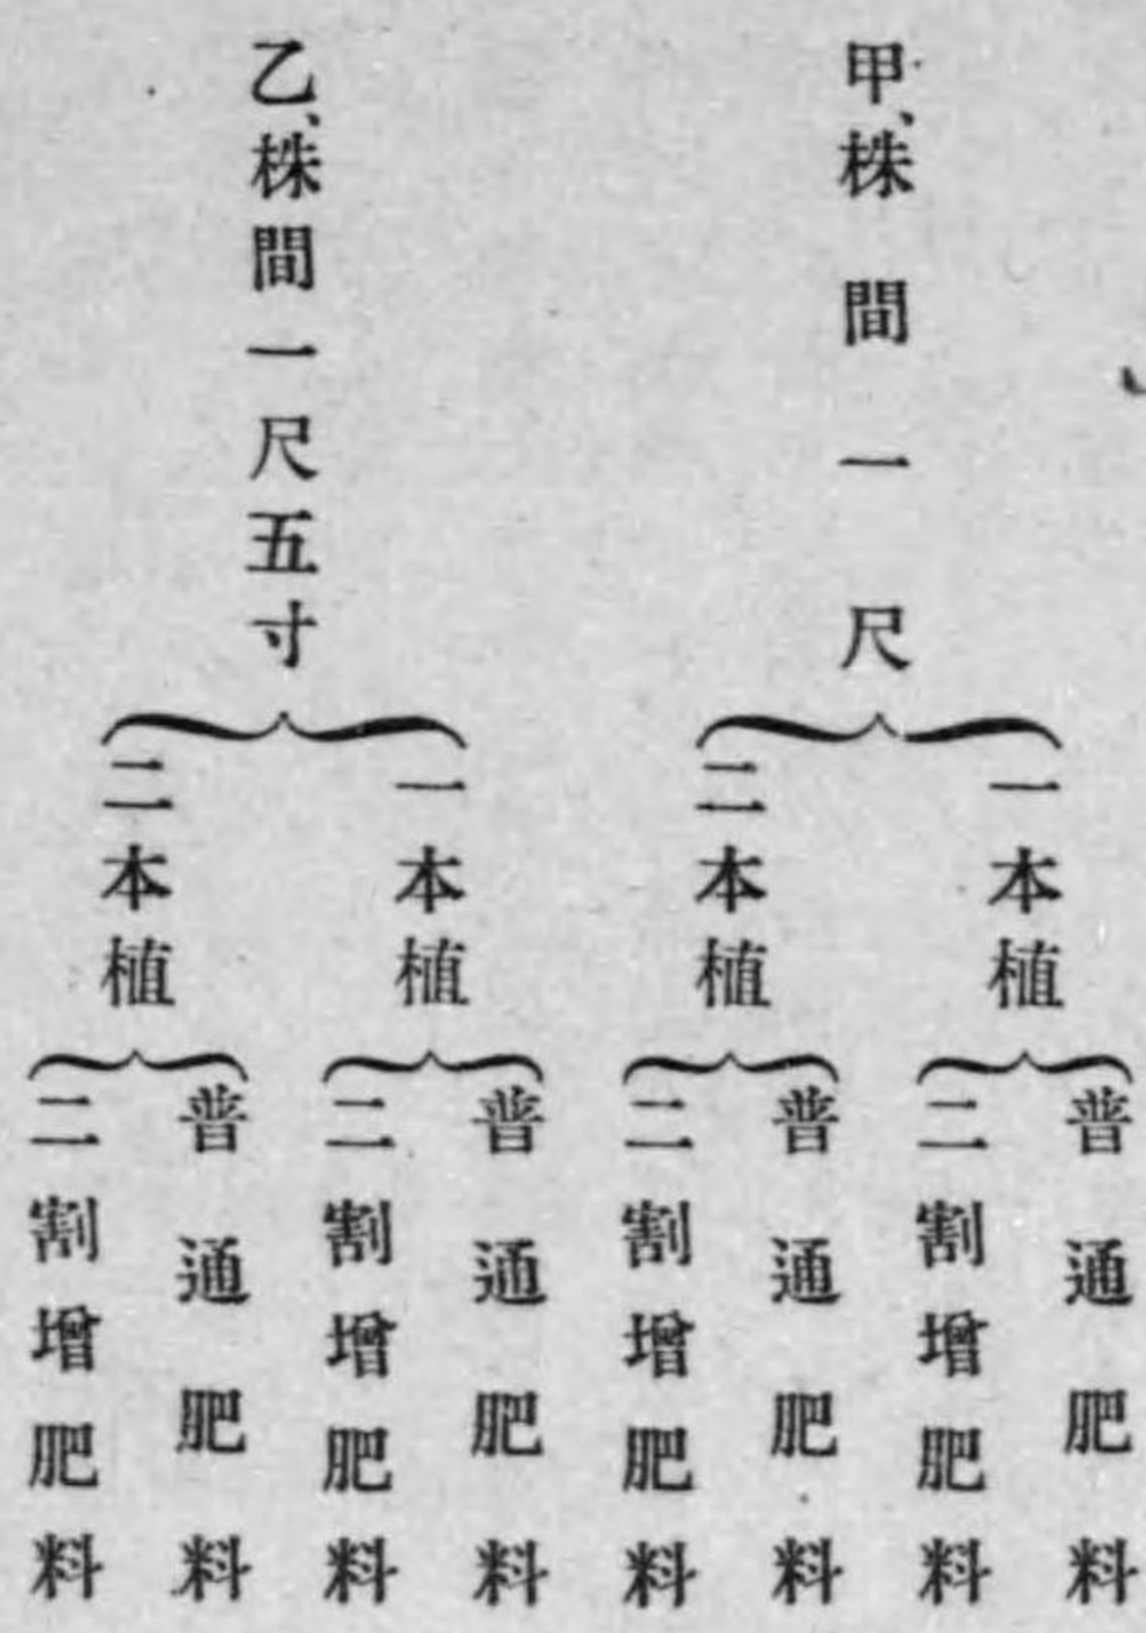 甲、株間一尺
一本植
普通肥料
二割增肥料
二本植
普通肥料
二割增肥料
乙、株間一尺五寸
一本植
普通肥料
二割增肥料
二本植
普通肥料
二割增肥料